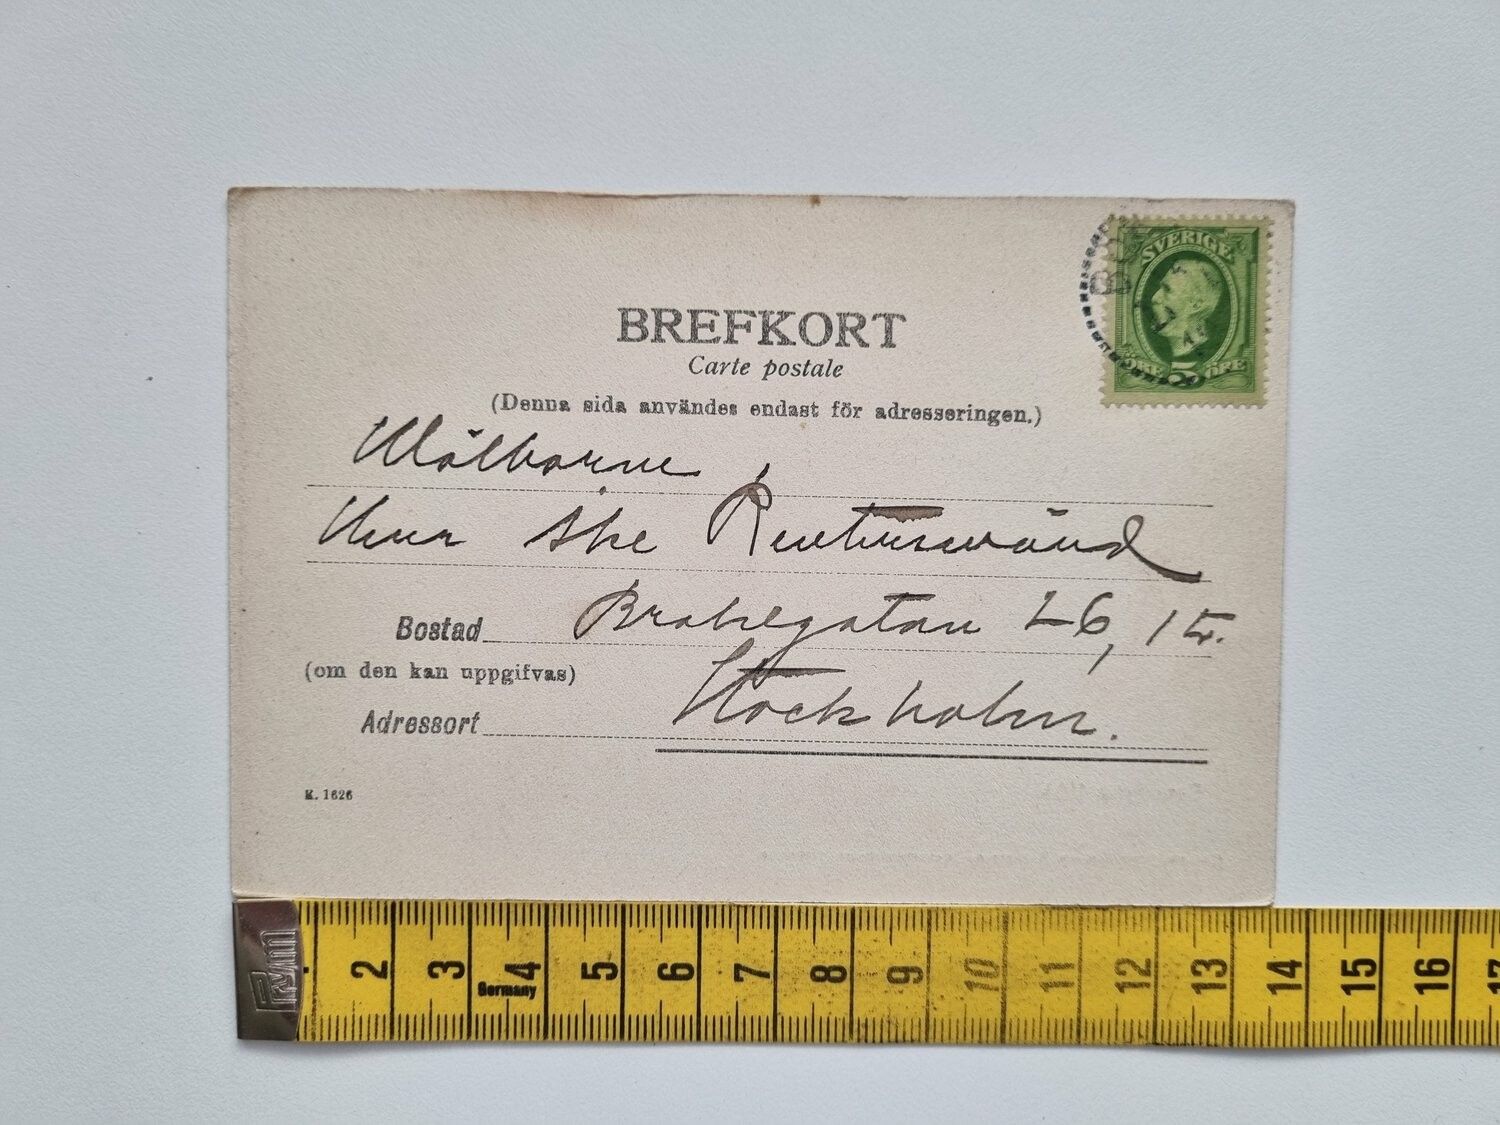 BREFKORT
Carte postale
(Denna sida användes endast för adresseringen.)
Välborne
Herr Åke
Bostad Brahegatan 26, 1 tr.
(om den kan uppgifvas)
Adressort Stockholm.
K. 1626
SVERIGE
5 ÖRE
Germany
2 3 4 5 6 7 8 9 10 11 12 13 14 15 16 17